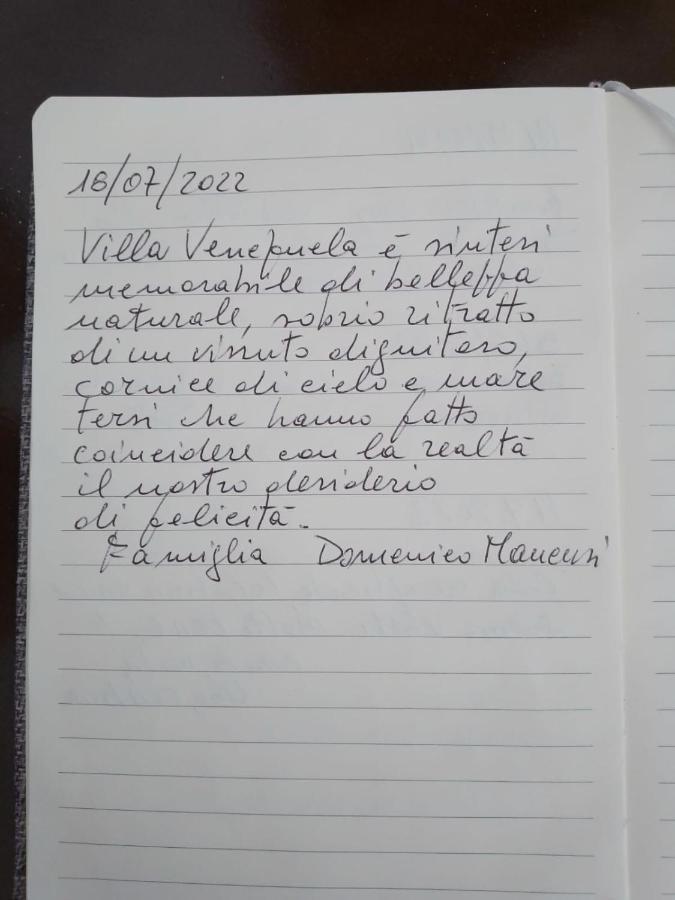 16/07/2022
Villa Venezuela è sintesi
memorabile di bellezza
naturale, sobrio ritratto
di un vissuto dignitoso,
cornice di cielo e mare
tersi che hanno fatto
coincidere con la realtà
il nostro desiderio
di felicità.
Famiglia Domenico